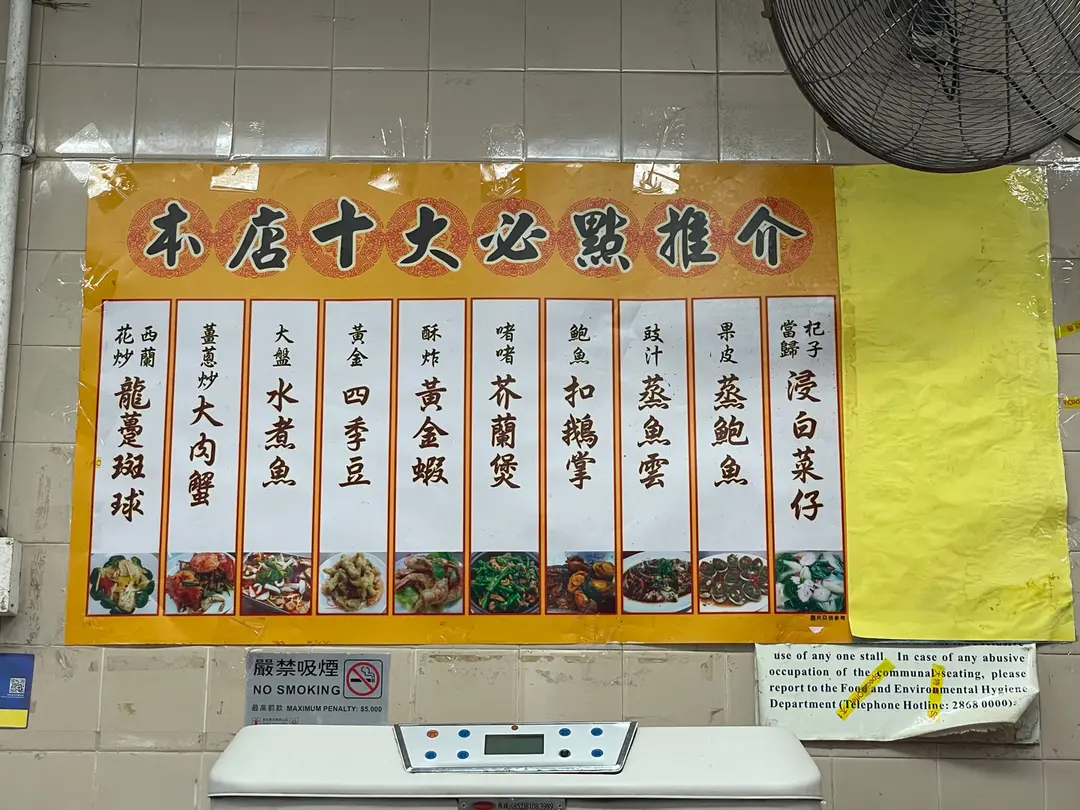 本店十大必點推介
杞子
當歸
浸白菜仔
果皮
蒸鮑魚
豉汁
蒸魚雲
鮑魚
扣鵝掌
啫啫
芥蘭煲
酥炸
黃金蝦
黃金
四季豆
大盤
水煮魚
薑蔥炒
大肉蟹
西蘭
花炒
龍躉斑球
圖片只供參考
嚴禁吸煙
NO SMOKING
最高罰款 MAXIMUM PENALTY: $5,000
use of any one stall. In case of any abusive
occupation of the communal seating, please
report to the Food and Environmental Hygiene
Department (Telephone Hotline: 2868 0000).